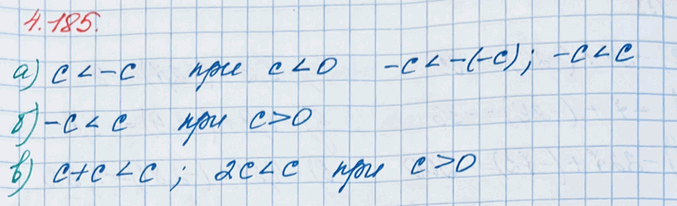 4.185.
а) c < -c при c < 0 -c < -(-c); -c < c
б) -c < c при c > 0
в) c + c < c; 2c < c при c > 0